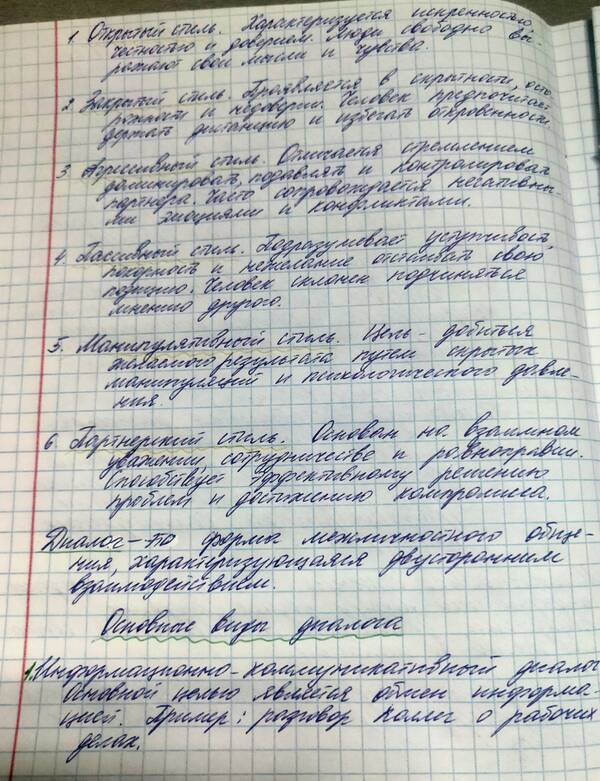 1. Открытый стиль. Характеризуется искренностью,
честностью и доверием. Люди свободно вы-
ражают свои мысли и чувства.
2. Закрытый стиль. Проявляется в скрытности, осто
рожности и недоверии. Человек предпочитает
держать дистанцию и избегать откровенности.
3. Агрессивный стиль. Отличается стремлением
доминировать, подавлять и контролировать
партнера. Часто сопровождается негативны
ми эмоциями и конфликтами.
4. Пассивный стиль. Подразумевает уступчивость,
покорность и нежелание отстаивать свою
позицию. Человек склонен подчиняться
мнению другого.
5. Манипулятивный стиль. Цель - добиться
желаемого результата путем скрытых
манипуляций и психологического давле-
ния.
6. Партнерский стиль. Основан на взаимном
уважении, сотрудничестве и равноправии.
Способствует эффективному решению
проблем и достижению компромисса.
Диалог - это форма межличностного обще-
ния, характеризующаяся двусторонним
взаимодействием.
Основные виды диалога
1. Информационно-коммуникативный диалог
Основной целью является обмен информа-
цией. Пример: разговор коллег о рабочих
делах.